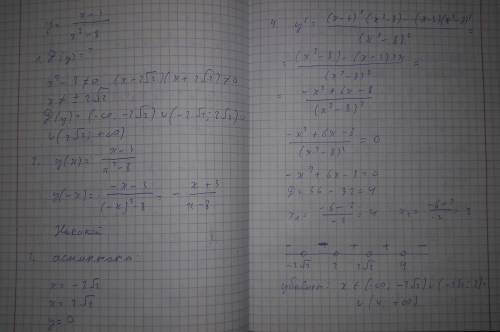 y = (x-3)/(x²-8)
1. D(y) = ?
x² - 8 ≠ 0 (x-2√2)(x+2√2) ≠ 0
x ≠ ± 2√2
D(y) = (-∞, -2√2) ∪ (-2√2; 2√2) ∪
∪ (2√2; +∞)
2. y(x) = (x-3)/(x²-8)
y(-x) = (-x-3)/((-x)²-8) = - (x+3)/(x-8)
асимптота
x = -2√2
x = 2√2
y = 0
4. y' = ((x-3)'(x²-8) - (x-3)(x²-8)')/(x²-8)² =
= ((x²-8) - (x-3)2x)/(x²-8)² =
= (-x²+6x-8)/(x²-8)²
(-x²+6x-8)/(x²-8)² = 0
-x²+6x-8 = 0
D = 36-32 = 4
x₁ = (-6-2)/-2 = 4 x₂ = (-6+2)/-2 = 2
-2√2 2 2√2 4
∪ (4; +∞)